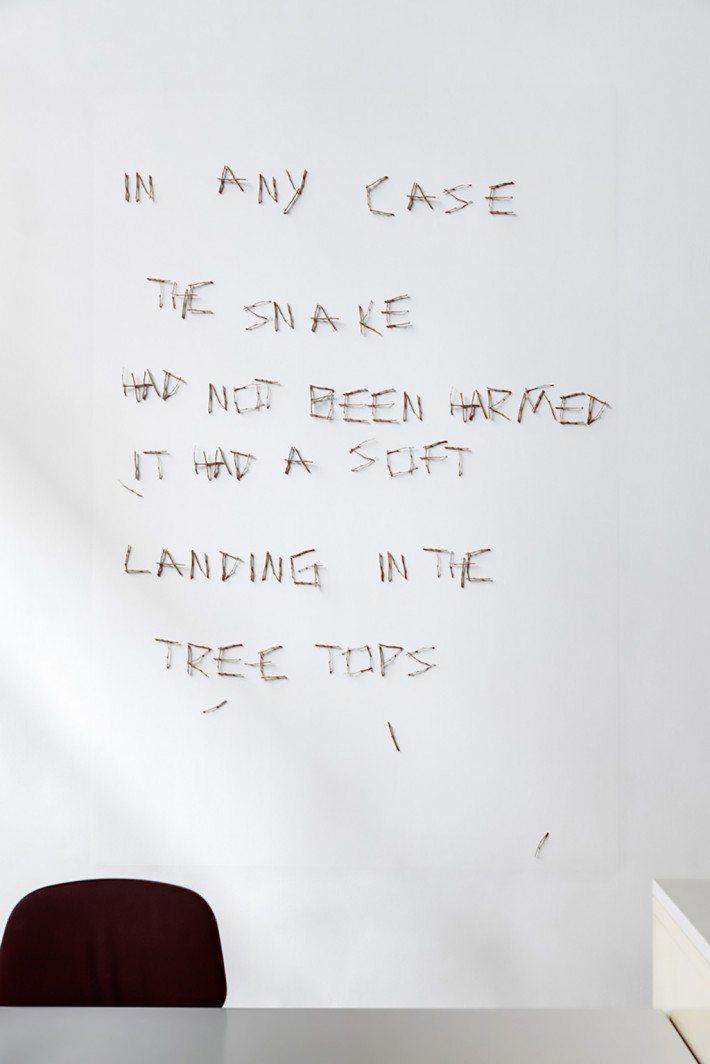 IN ANY CASE
THE SNAKE
HAD NOT BEEN HARMED
IT HAD A SOFT
LANDING IN THE
TREE TOPS